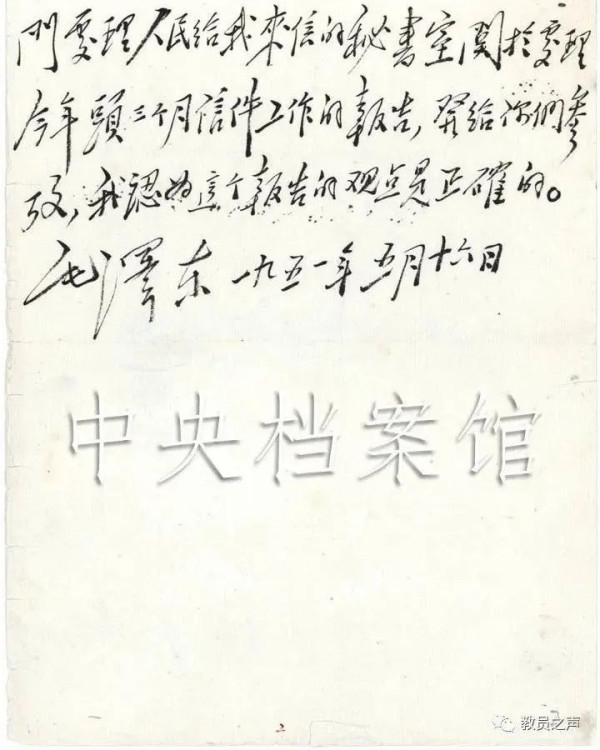 門處理人民给我來信的秘書室関於處理
今年頭三个月信件工作的報告，發给你們參
攷，我認为這个報告的观点是正確的。
毛澤东 一九五一年五月十六日
中央档案馆
2
教员之声